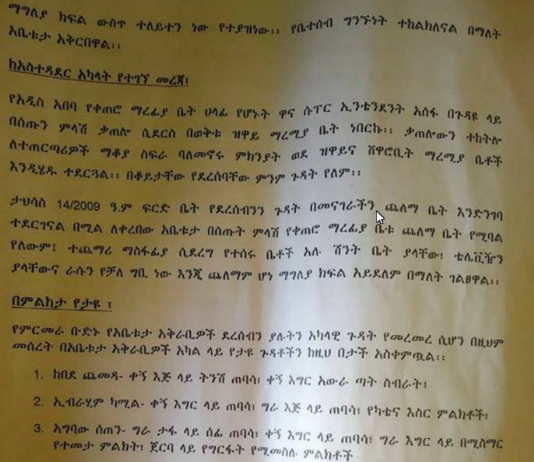 ማግለያ ክፍል ውስጥ ተለይተን ነው የተያዝነው፡፡ የቤተሰብ ግንኙነት ተከልክለናል በማለት
አቤቱታ አቅርበዋል፡፡
ከአስተዳደር አካላት የተገኘ መረጃ፤
የአዲስ አበባ የቀጠሮ ማረፊያ ቤት ሀላፊ የሆኑት ዋና ሱፐር ኢንቴንደንት አሰፋ በጉዳዩ ላይ
በሰጡን ምላሽ ቃጠሎ ሲደርስ በወቅቱ ዝዋይ ማረሚያ ቤት ነበርኩ፡፡ ቃጠሎውን ተከትሎ
ለተጠርጣሪዎች ማቆያ ስፍራ ባለመኖሩ ምክንያት ወደ ዝዋይና ሸዋሮቢት ማረሚያ ቤቶች
እንዲሄዱ ተደርጓል፡፡ በቆይታቸው የደረሰባቸው ምንም ጉዳት የለም፡፡
ታህሳስ 14/2009 ዓ.ም ፍርድ ቤት የደረሰብንን ጉዳት በመናገራችን ጨለማ ቤት እንድንገባ
ተደርገናል በሚል ለቀረበው አቤቱታ በሰጡት ምላሽ የቀጠሮ ማረፊያ ቤቱ ጨለማ ቤት የሚባል
የለውም፤ ተጨማሪ ማስፋፊያ ሲደረግ የተሰሩ ቤቶች አሉ ሽንት ቤት ያላቸው፣ ቴሌቪዥን
ያላቸውና ራሱን የቻለ ግቢ ነው እንጂ ጨለማም ሆነ ማግለያ ክፍል አይደለም በማለት ገልፀዋል፡፡
በምልከታ የታዩ ፤
የምርመራ ቡድኑ የአቤቱታ አቅራቢዎች ደረሰብን ያሉትን አካላዊ ጉዳት የመረመረ ሲሆን በዚህም
መሰረት በአቤቱታ አቅራቢዎች አካል ላይ የታዩ ጉዳቶችን ከዚህ በታች አስቀምጧል፡፡
1. ከበደ ጨመዳ- ቀኝ እጅ ላይ ትንሽ ጠባሳ፣ ቀኝ እግር አውራ ጣት ስብራት፤
2. ኢብራሂም ካሚል- ቀኝ እግር ላይ ጠባሳ፣ ግራ እጅ ላይ ጠባሳ፣ የካቴና እስር ምልክቶች፣
3. አግባው ሰጠኝ- ግራ ታፋ ላይ ሰፊ ጠባሳ፣ ቀኝ እግር ላይ ጠባሳ፣ ግራ እግር ላይ በሚስማር
የተመታ ምልክት፣ ጀርባ ላይ የግርፋት የሚመስሉ ምልክቶች